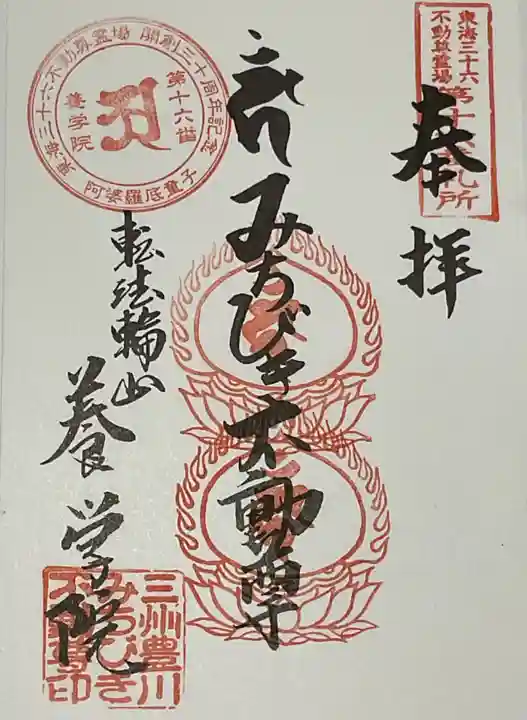 奉拝
東海三十六
不動尊霊場
第十六札所
みちびき不動尊
東海三十六不動尊霊場 開創三十周年記念
第十六番
養学院
阿婆羅底童子
転法輪山
養学院
三州豊川
みちびき
不動尊印